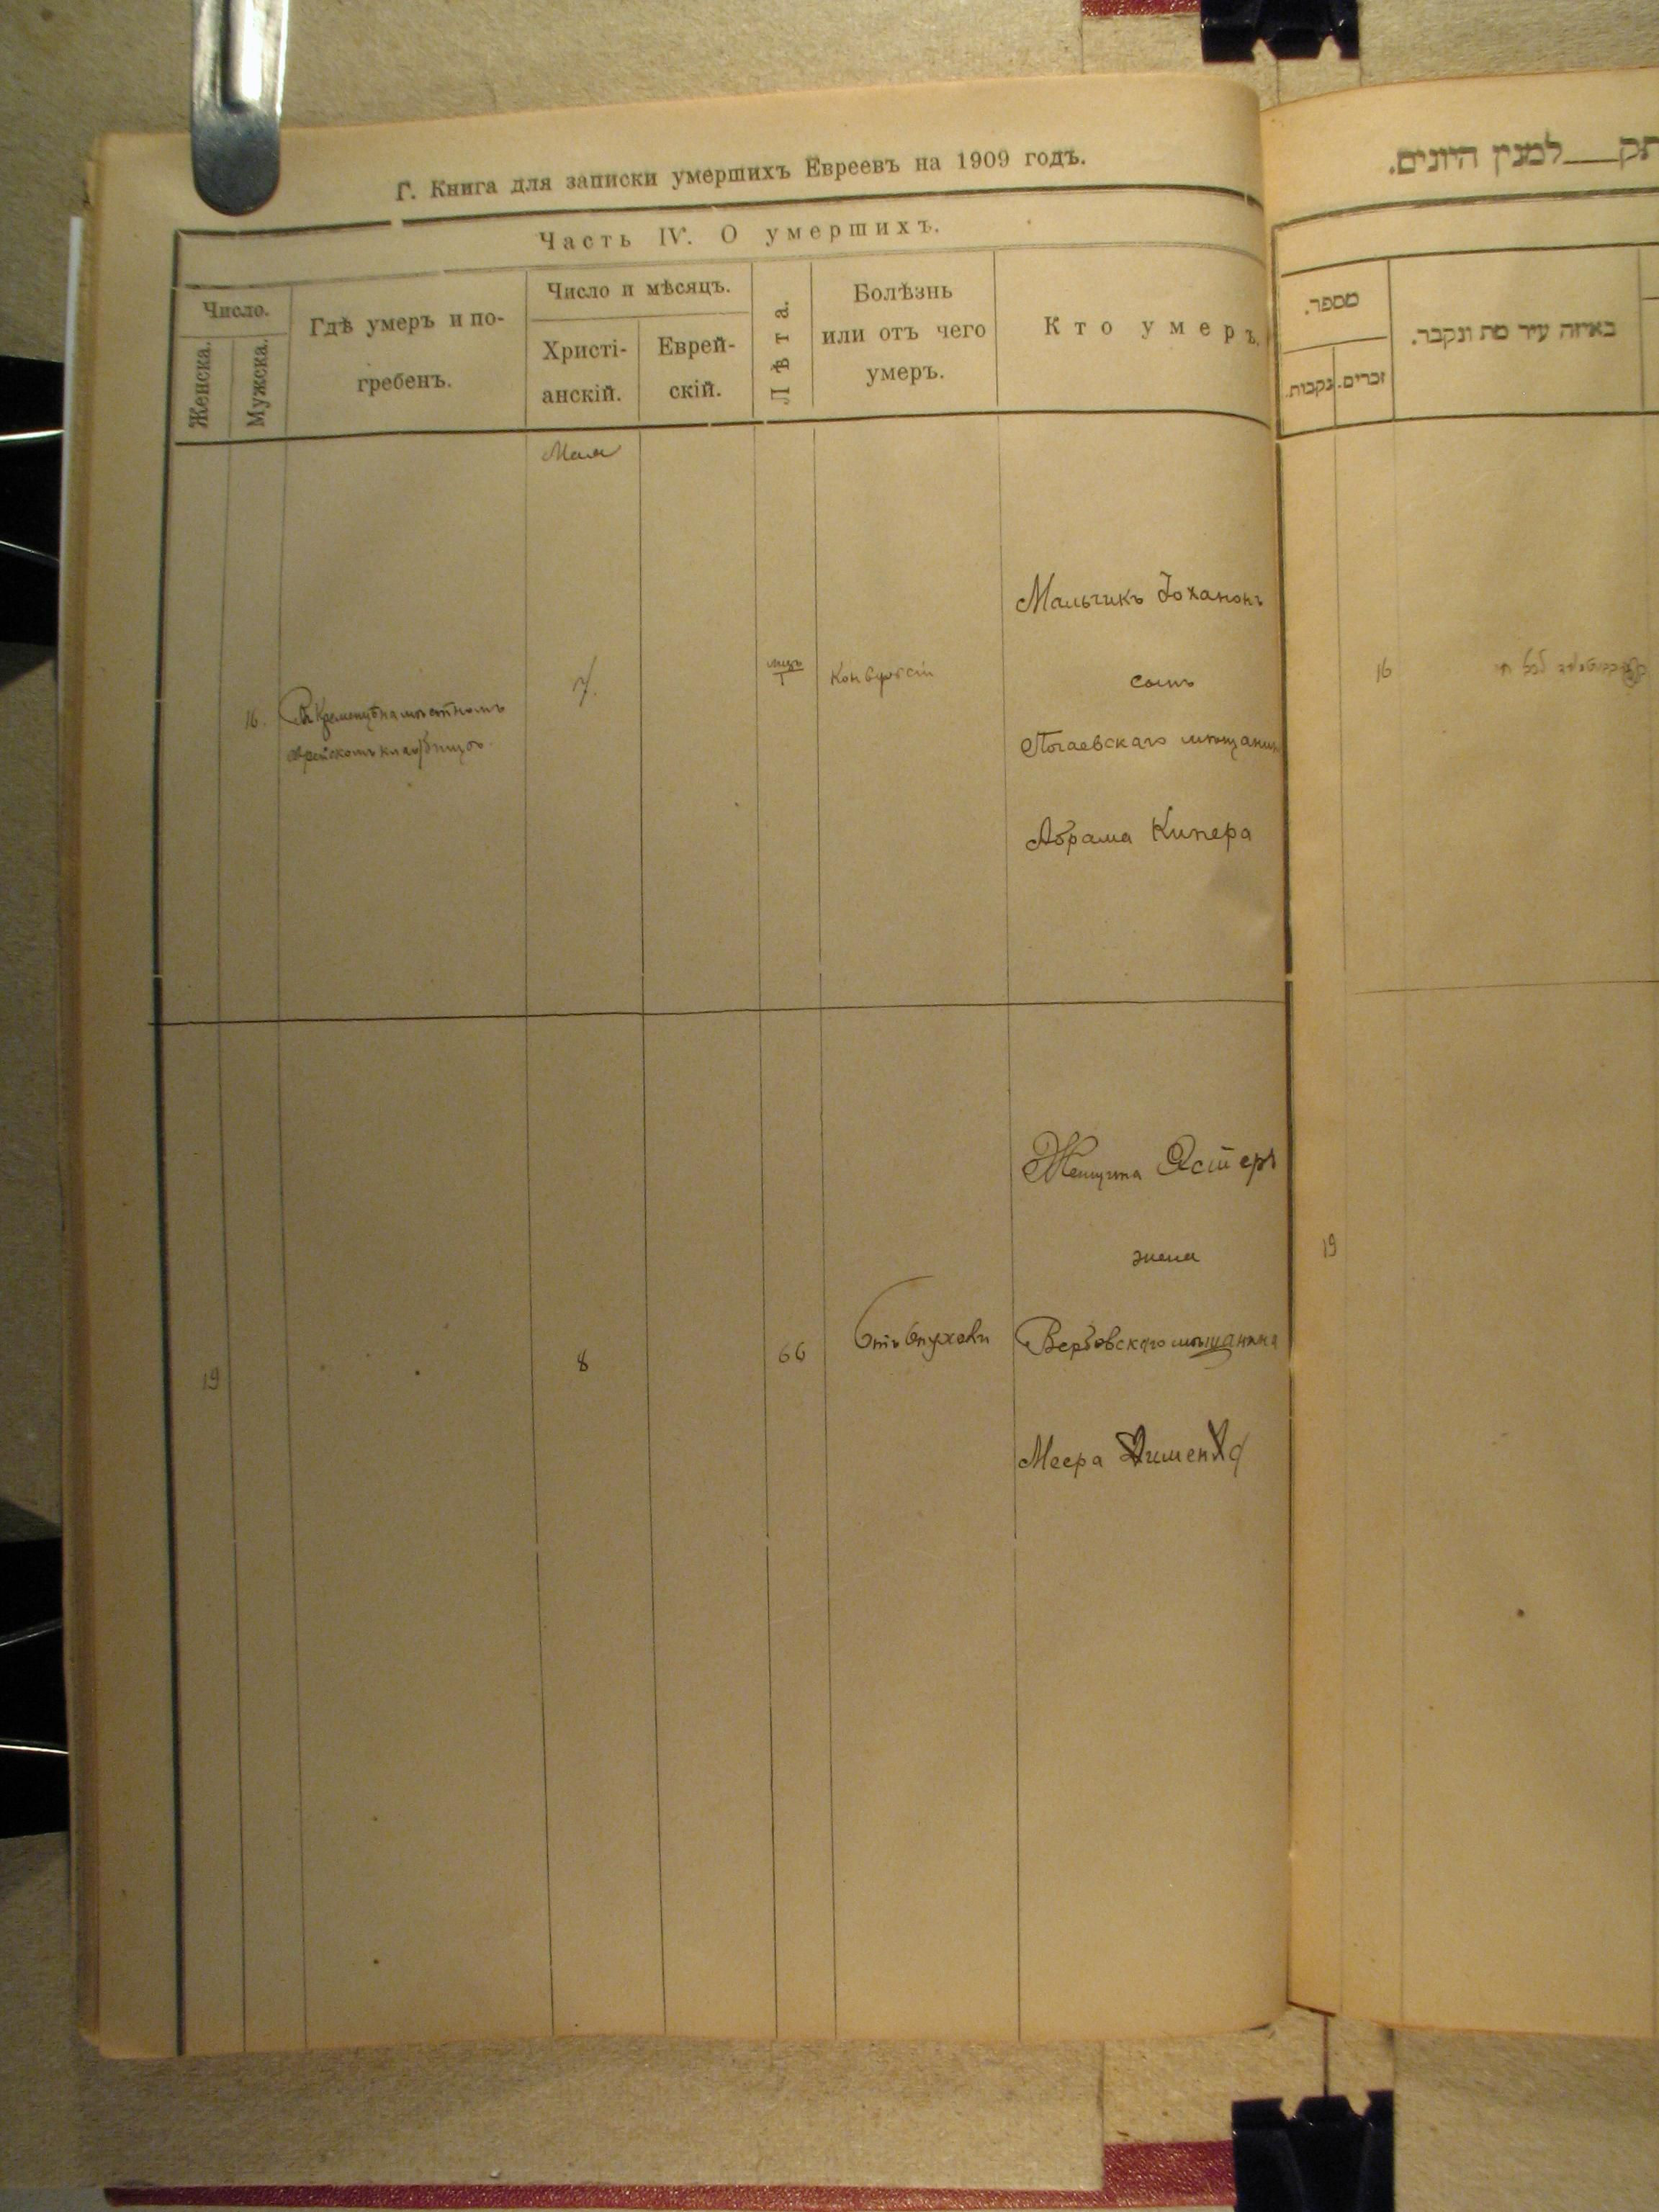 Г. Книга для записки умершихъ Евреевъ на 1909 годъ.
Часть IV. О умершихъ.
Число.
Женска.
Мужска.
Гдѣ умеръ и по-
гребенъ.
Число и мѣсяцъ.
Христі-
анскій.
Еврей-
скій.
Лѣта.
Болѣзнь
или отъ чего
умеръ.
Кто умеръ.
Мая
16.
Въ Кременцѣ на мѣстномъ
еврейскомъ кладбищѣ
7.
мцъ
1
Конвульсіи
Мальчикъ Іоханонъ
сынъ
Почаевскаго мѣщанина
Абрама Кипера
19
8
66
Отъ Опухоли
Женщина Эстеръ
жена
Вербовскаго мѣщанина
Меера
תק למנין היונים.
מספר.
נקבות.
זכרים.
באיזה עיר מת ונקבר.
16
19